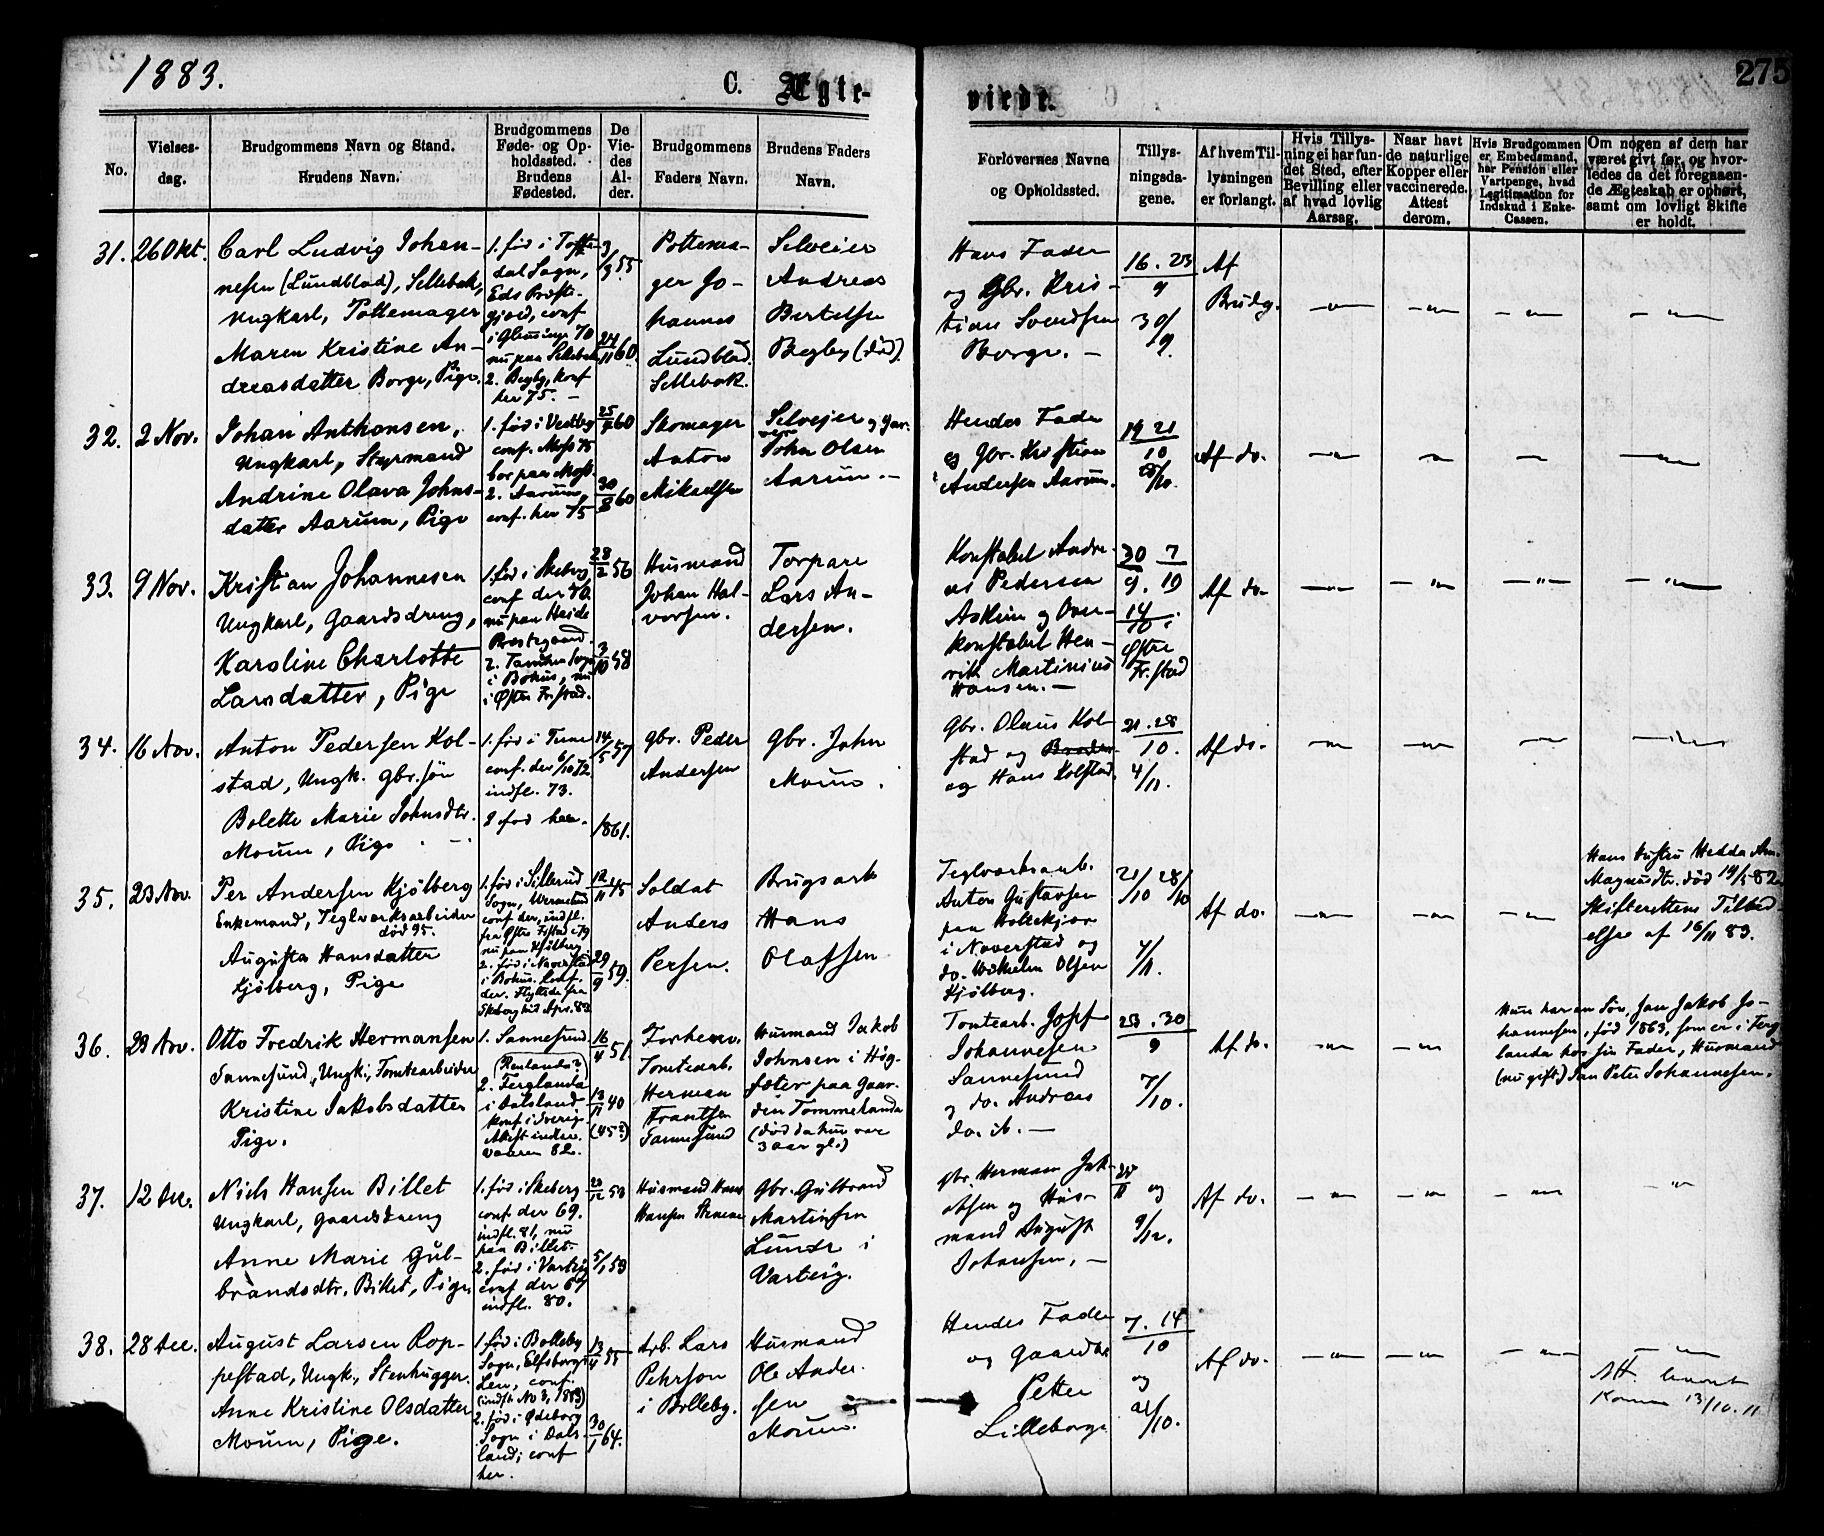 1883.
C. Ægte-
viede.
275
No.
Vielses-
dag.
Brudgommens Navn og Stand.
Brudens Navn.
Brudgommens
Føde- og Op-
holdssted.
Brudens
Fødested.
De
Vie-
des
Al-
der.
Brudgommens
Faders Navn.
Brudens Faders
Navn.
Forlovernes Navne
og Opholdssted.
Tillys-
ningsda-
gene.
Af hvem Til-
lysningen
er forlangt.
Hvis Tillys-
ning ei har fun-
det Sted, efter
Bevilling eller
af hvad lovlig
Aarsag.
Naar havt
de naturlige
Kopper eller
vaccinerede.
Attest
derom.
Hvis Brudgommen
er Embedsmand,
har Pension eller
Vartpenge, hvad
Legitimation for
Indskud i Enke-
Cassen.
Om nogen af dem har
været givt før, og hvor-
ledes da det foregaaen-
de Ægteskab er ophørt,
samt om lovligt Skifte
er holdt.
31. 26 Okt.
Carl Ludvig Johan-
nesen (Lundblad), Sellebak,
Ungkarl, Pottemager
Maren Kristine An-
dreasdatter Borge, Pige.
1. fød i
dal Sogn,
Eds Præste-
gjæld, conf
i Glemminge 70
nu paa Sellebak
2. Begby, konf
her 75. -
3/3 55
24/11 60
Pottema-
ger Jo-
hannes
Lundblad
Sellebak.
Selveier
Andreas
Bertelsen
Begby (død).
Hans Fader
og Gbr. Kris-
tian Svendsen
Borge. -
16. 23
9
30/9.
Af
Brudg.
32. 2 Nov.
Johan Anthonsen,
Ungkarl, Styrmand
Andrine Olava Johns-
datter Aarum, Pige
1. fød i Vestby
conf. Moss 75
bor paa Moss.
2. Aarum,
conf. her 75
60
30/8 60
Skomager
Anton
Mikaelsen
Selveier og Gaar-
John Olsen
Aarum. -
Hendes Fader
og Gbr. Kristian
Andersen Aarum.
14 21
10
28/10.
Af do.
33. 9 Nov.
Kristian Johannesen
Ungkarl, Gaardsdreng,
Karoline Charlotte
Larsdatter, Pige
1. fød i Skeberg
conf der 70.
nu paa Heide
Præstegaard.
2. Tanum Sogn
i Bohus, nu
i Østre Fr.stad.
28/2 56
3/10 58
Husmand
Johan Hal-
vorsen.
Torpare
Lars An-
dersen.
Konstabel Andre-
as Pedersen
Askim og Over-
konstabel Hen-
rik Martinius
Hansen. -
30 7
9. 10
14/10 i
Østre
Fr.stad
Af do.
34. 16 Nov.
Anton Pedersen Kol-
stad, Ungk. Gbr.søn
Bolette Marie Johnsdtr.
Moum, Pige
1. fød i Tune
conf. der 6/10 72
indfl. 73.
2 fød her.
14/5 57
1861.
Gbr. Peder
Andersen
Gbr. John
Moum.
Gbr. Olaus Kol-
stad og
og Hans Kolstad.
21. 28
10.
4/11.
Af do.
35. 23 Nov.
Per Andersen Kjølberg
Enkemand, Teglverksarbeider
død 95.
Augusta Hansdatter
Kjølberg, Pige
1. fød i Sillerud
Sogn, Wermeland
conf der, indfl.
fra Østre Fr.stad i 79
nu paa Kjølberg
2. fød i Naverstad
i Bohus. Conf.
der. Flyttede fra
Skeberg hid Apr. 83.
12/11 45
29/9 59.
Soldat
Anders
Persen.
Brugsarb
Hans
Olafsen
Teglverksarb.
Anton Gustavsen
paa
i Naverstad og
do. Wilhelm Olsen
Kjølberg.
21/10 28/10
4/11.
Af do.
Hans Hustru Hedda An.
Magnusdtr. død 19/5 82
Skifterettens Tilsted
else af 16/11 83.
36. 23 Nov.
Otto Fredrik Hermansen
Sannesund, Ungk., Tomtearbeider
Kristine Jakobsdatter
Pige.
1. Sannesund
2. Ferglanda
i Dalsland
konf i Sverig
Attest inden
vaaren 82.
16/4 51
13/11 40
(45?)
Forhenv.
Tomtearb.
Herman
Frantsen
Sannesund
Husmand Jakob
Johnsen i Høg-
sæter paa Gaar-
den Tommelanda
(død da hun var
3 aar gl.)
Tomtearb. Josef
Johannesen
Sannesund
og do. Andreas
do. ib. -
23. 30
9
7/10.
Af do.
Hun har en Søn, Jan Jakob Jo-
hannesen, fød 1863, som er i Ferg
landa hos sin Fader, Husmand
(nu gift) Jan Peter Johannesen.
37. 12 Dec.
Niels Hansen Billet
Ungkarl, Gaardsdreng
Anne Marie Gul-
brandsdtr. Billet, Pige
1. fød i Skeberg
conf der 69.
indfl. 81, nu
paa Billet.
2. fød i Varteig
conf der 67
indfl. 80.
5/1 53
Husmand Hans
Hansen
Gbr. Gulbrand
Martinsen
Lunde i
Varteig.
Gbr. Herman Jak-
obsen og Hus-
mand August
Johansen. -
25/11 og
9/12.
Af do.
38. 28 Dec.
August Larsen Rop-
pestad, Ungk., Stenhugger.
Anne Kristine Olsdatter
Moum, Pige.
1. fød i Bolleby
Sogn, Elfsborgs
Len, conf.
(indfl. No 3, 1883)
2. fød i Ødeborg
Sogn i Dals-
land; conf
her.
13/4 55
30/1 64.
Arb. Lars
Pehrson
i Bolleby.
Husmand
Ole Ander-
sen
Moum.
Hendes Fader
og Gaardbr.
Petter
Lilleborge
7. 14
10
og
21/10.
Af do.
Att.
13/10. 11